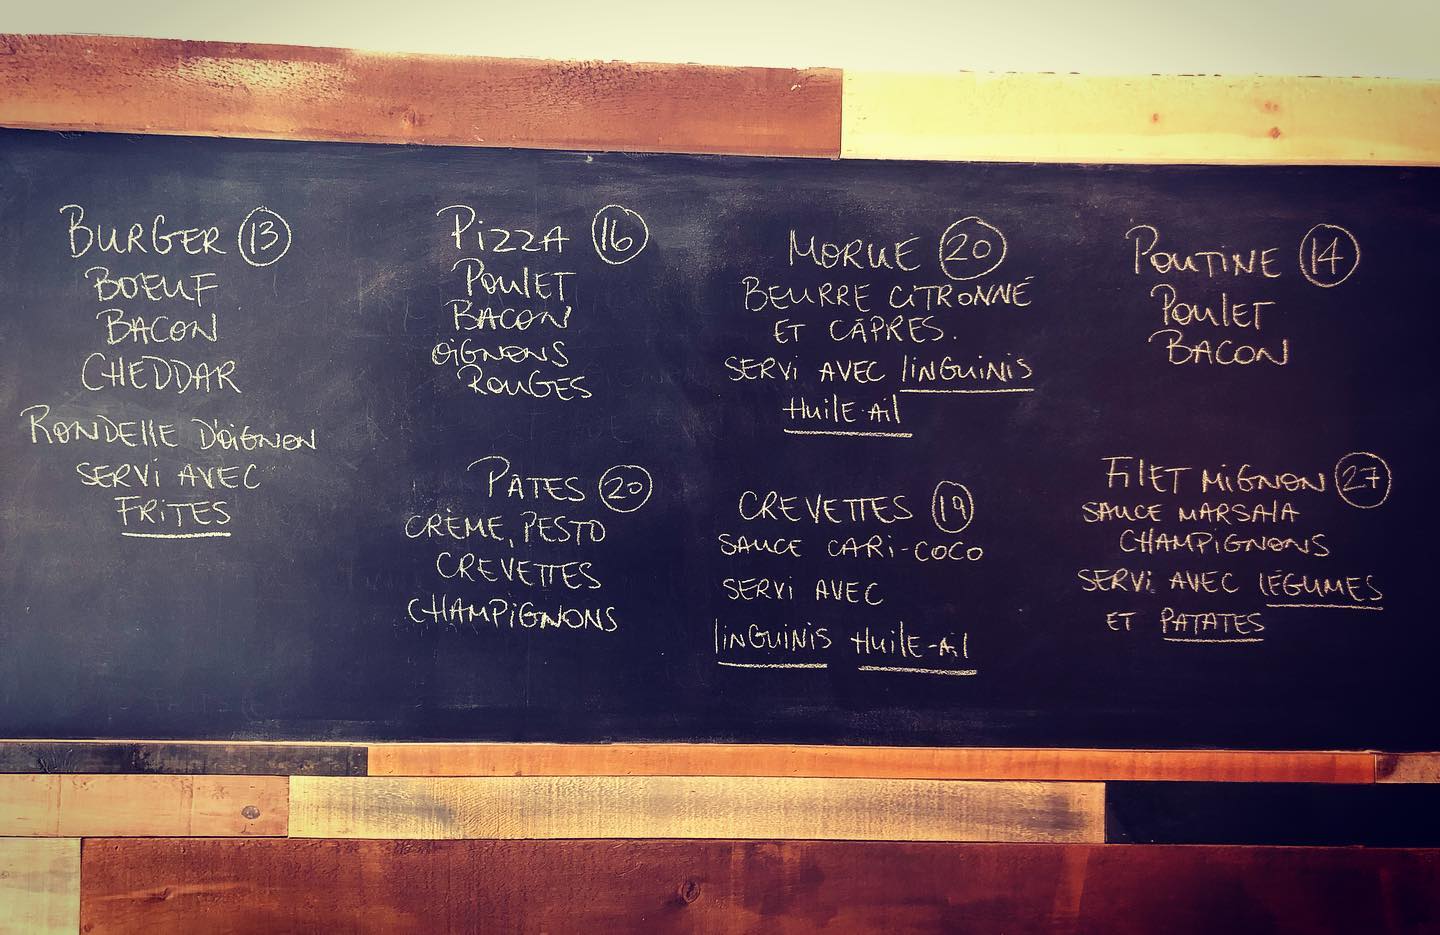 BURGER 13
BOEUF
BACON
CHEDDAR
RONDELLE D'OIGNON
SERVI AVEC
FRITES
PIZZA 16
POULET
BACON
OIGNONS
ROUGES
PATES 20
CRÈME, PESTO
CREVETTES
CHAMPIGNONS
MORUE 20
BEURRE CITRONNÉ
ET CÂPRES.
SERVI AVEC LINGUINIS
HUILE-AIL
CREVETTES 19
SAUCE CARI-COCO
SERVI AVEC
LINGUINIS HUILE-AIL
POUTINE 14
POULET
BACON
FILET MIGNON 27
SAUCE MARSALA
CHAMPIGNONS
SERVI AVEC LÉGUMES
ET PATATES